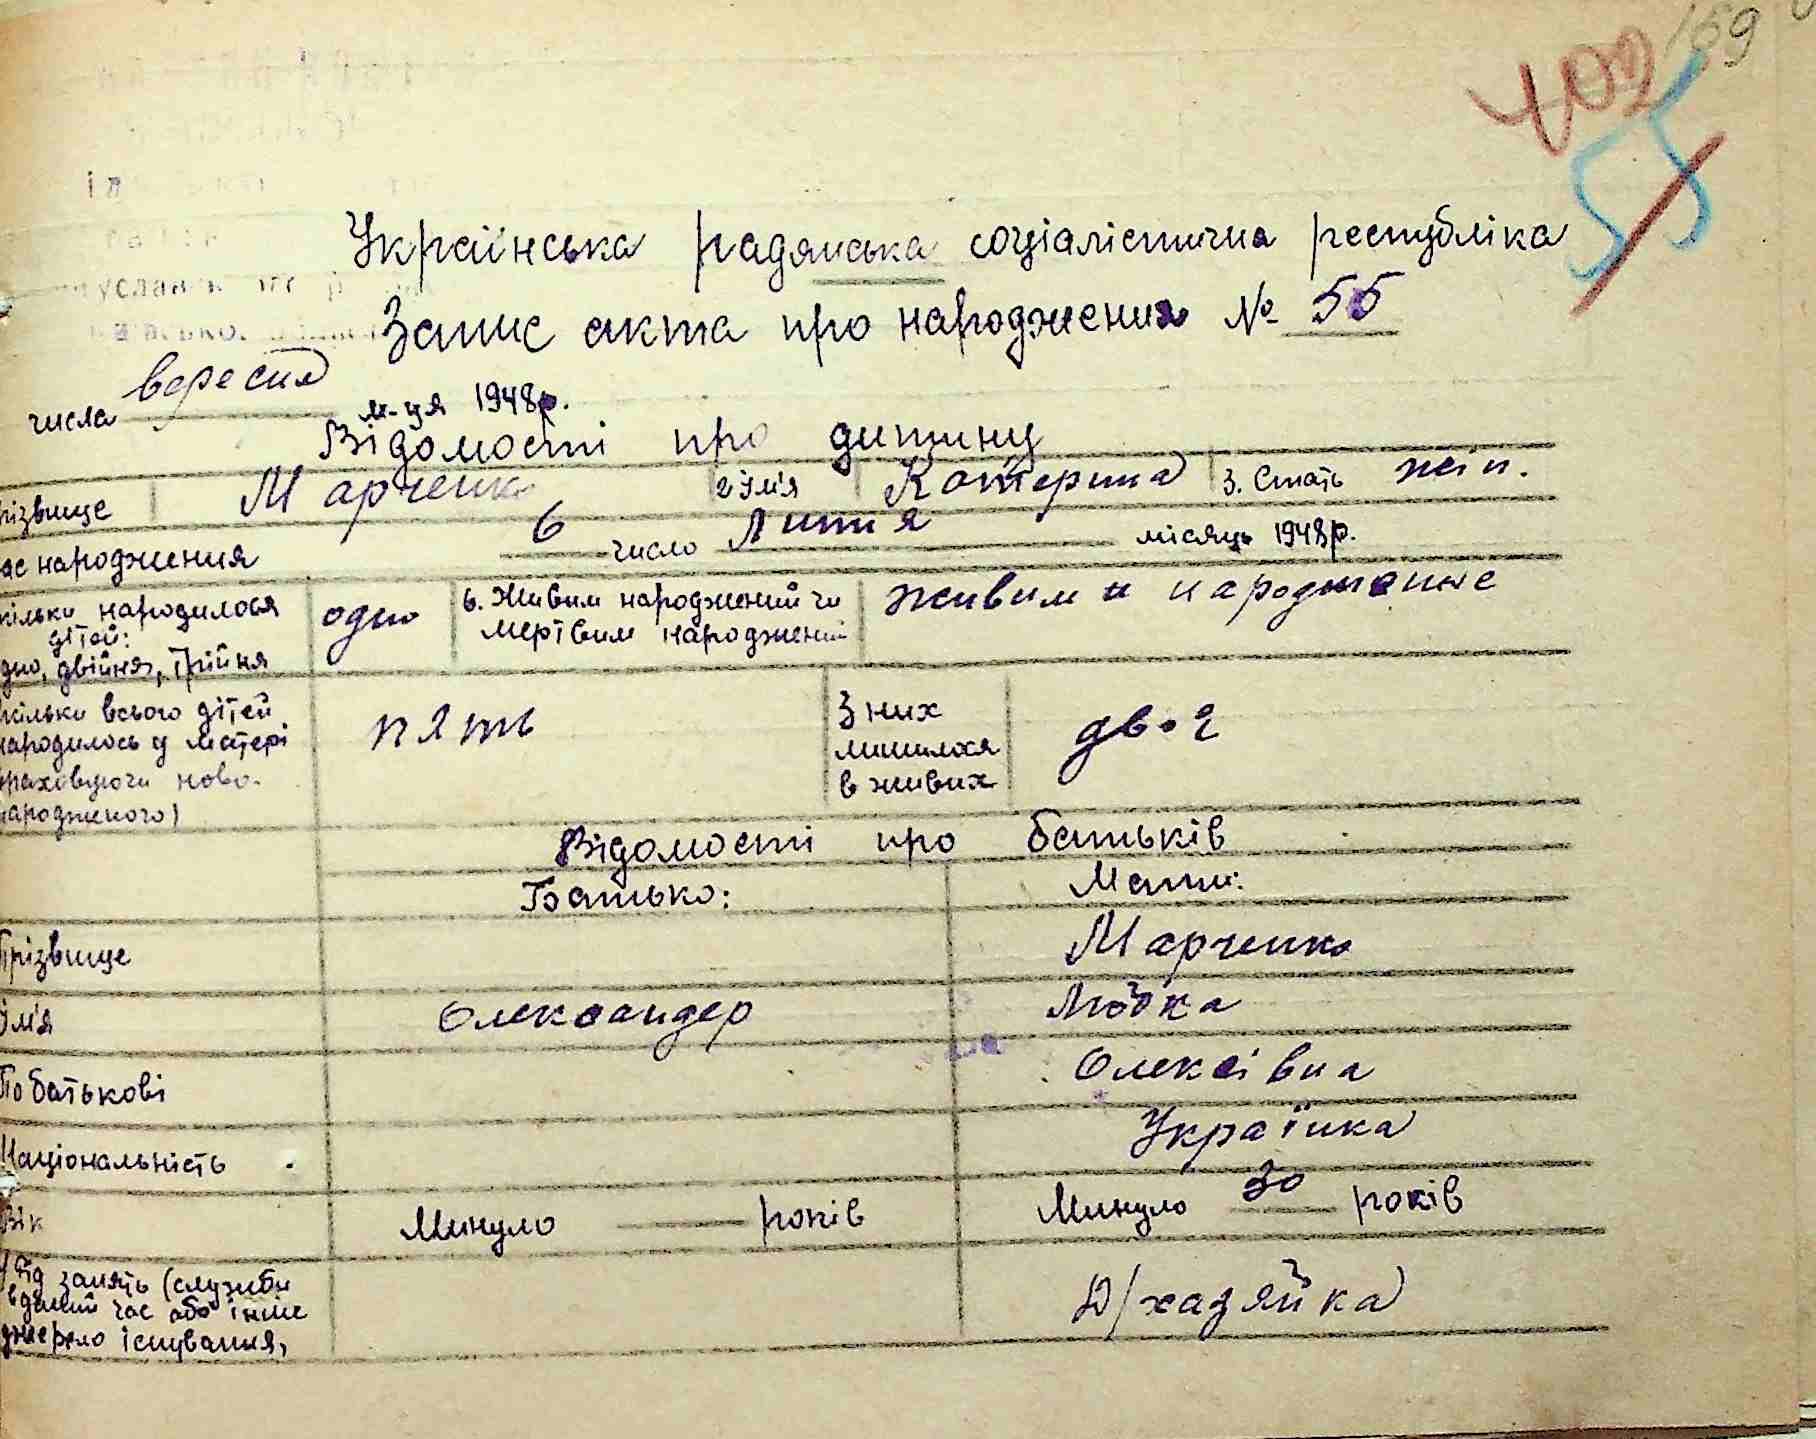 169
402
55
Українська радянська соціалістична республіка
Запис акта про народження № 55
числа вересня м-ця 1948р.
Відомості про дитину
різвище Марченко 2 Ім'я Катерина 3. Стать жін.
ас народження 6 число Липня місяць 1948р.
кільки народилося одно 6. Живим народжений чи живими народжение
дітей: мертвим народжений
дно, двійня, трійня
кільки всього дітей пять З них двоє
народилось у матері лишилося
враховуючи ново- в живих
народженого)
Відомості про батьків
Батько: Мати:
Прізвище Марченко
Ім'я Олександер Любка
По батькові Олексіївна
Національність Українка
Вік Минуло — років Минуло 30 років
Рід занять (служби Д/хазяйка
в даний час або інше
джерело існування,